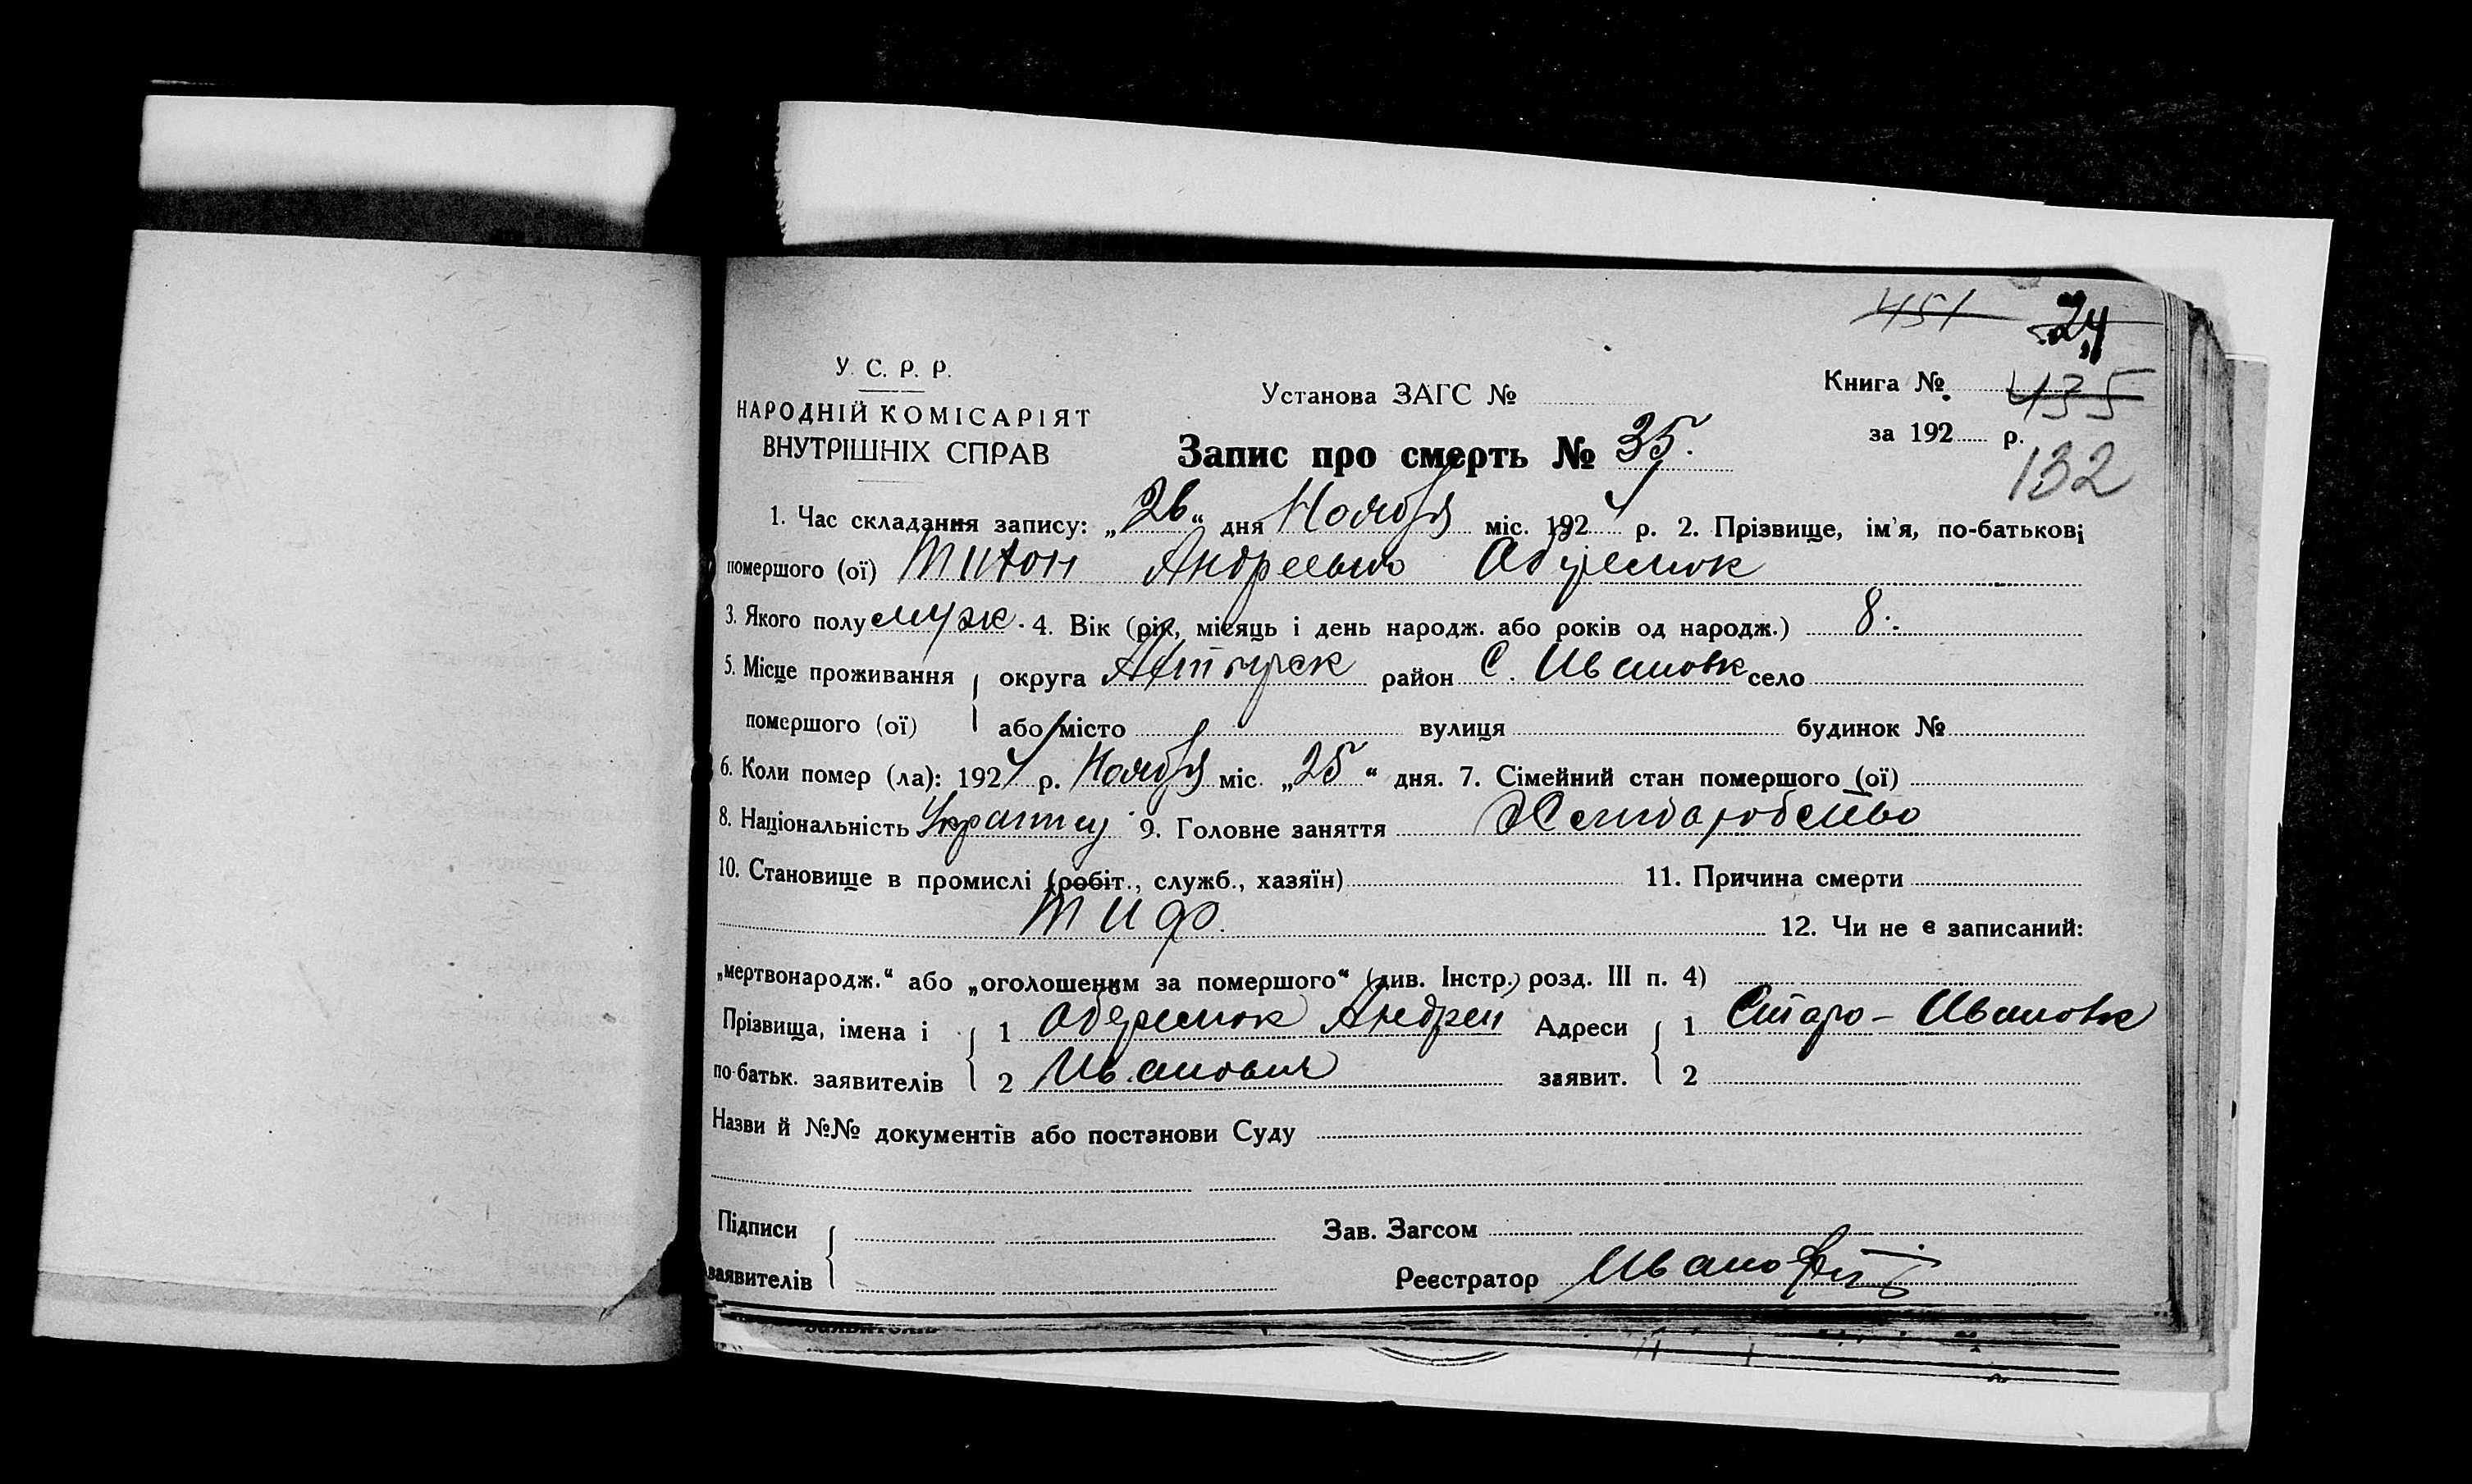 451 24
У. С. Р. Р.
НАРОДНІЙ КОМІСАРІЯТ
ВНУТРІШНІХ СПРАВ
Установа ЗАГС №
Книга № 435
за 192 р.
132
Запис про смерть № 35.
1. Час складання запису: „26“ дня Ноября міс. 192 р. 2. Прізвище, ім'я, по-батькові
помершого (ої) Тихон Андреевич
3. Якого полу муж. 4. Вік (рік, місяць і день народж. або років од народж.) 8.
5. Місце проживання округа район С. Ивановк село
помершого (ої) або місто вулиця будинок №
6. Коли помер (ла): 192 р. Ноября міс. „25“ дня. 7. Сімейний стан помершого (ої)
8. Національність 9. Головне заняття
10. Становище в промислі (робіт., служб., хазяїн) 11. Причина смерти
Тиф. 12. Чи не є записаний:
„мертвонародж.“ або „оголошеним за помершого“ (див. Інстр.) розд. III п. 4)
Прізвища, імена і 1 Андрей Адреси 1 Старо-Ивановк
по-батьк. заявителів 2 Иванович заявит. 2
Назви й №№ документів або постанови Суду
Підписи Зав. Загсом
заявителів Реєстратор